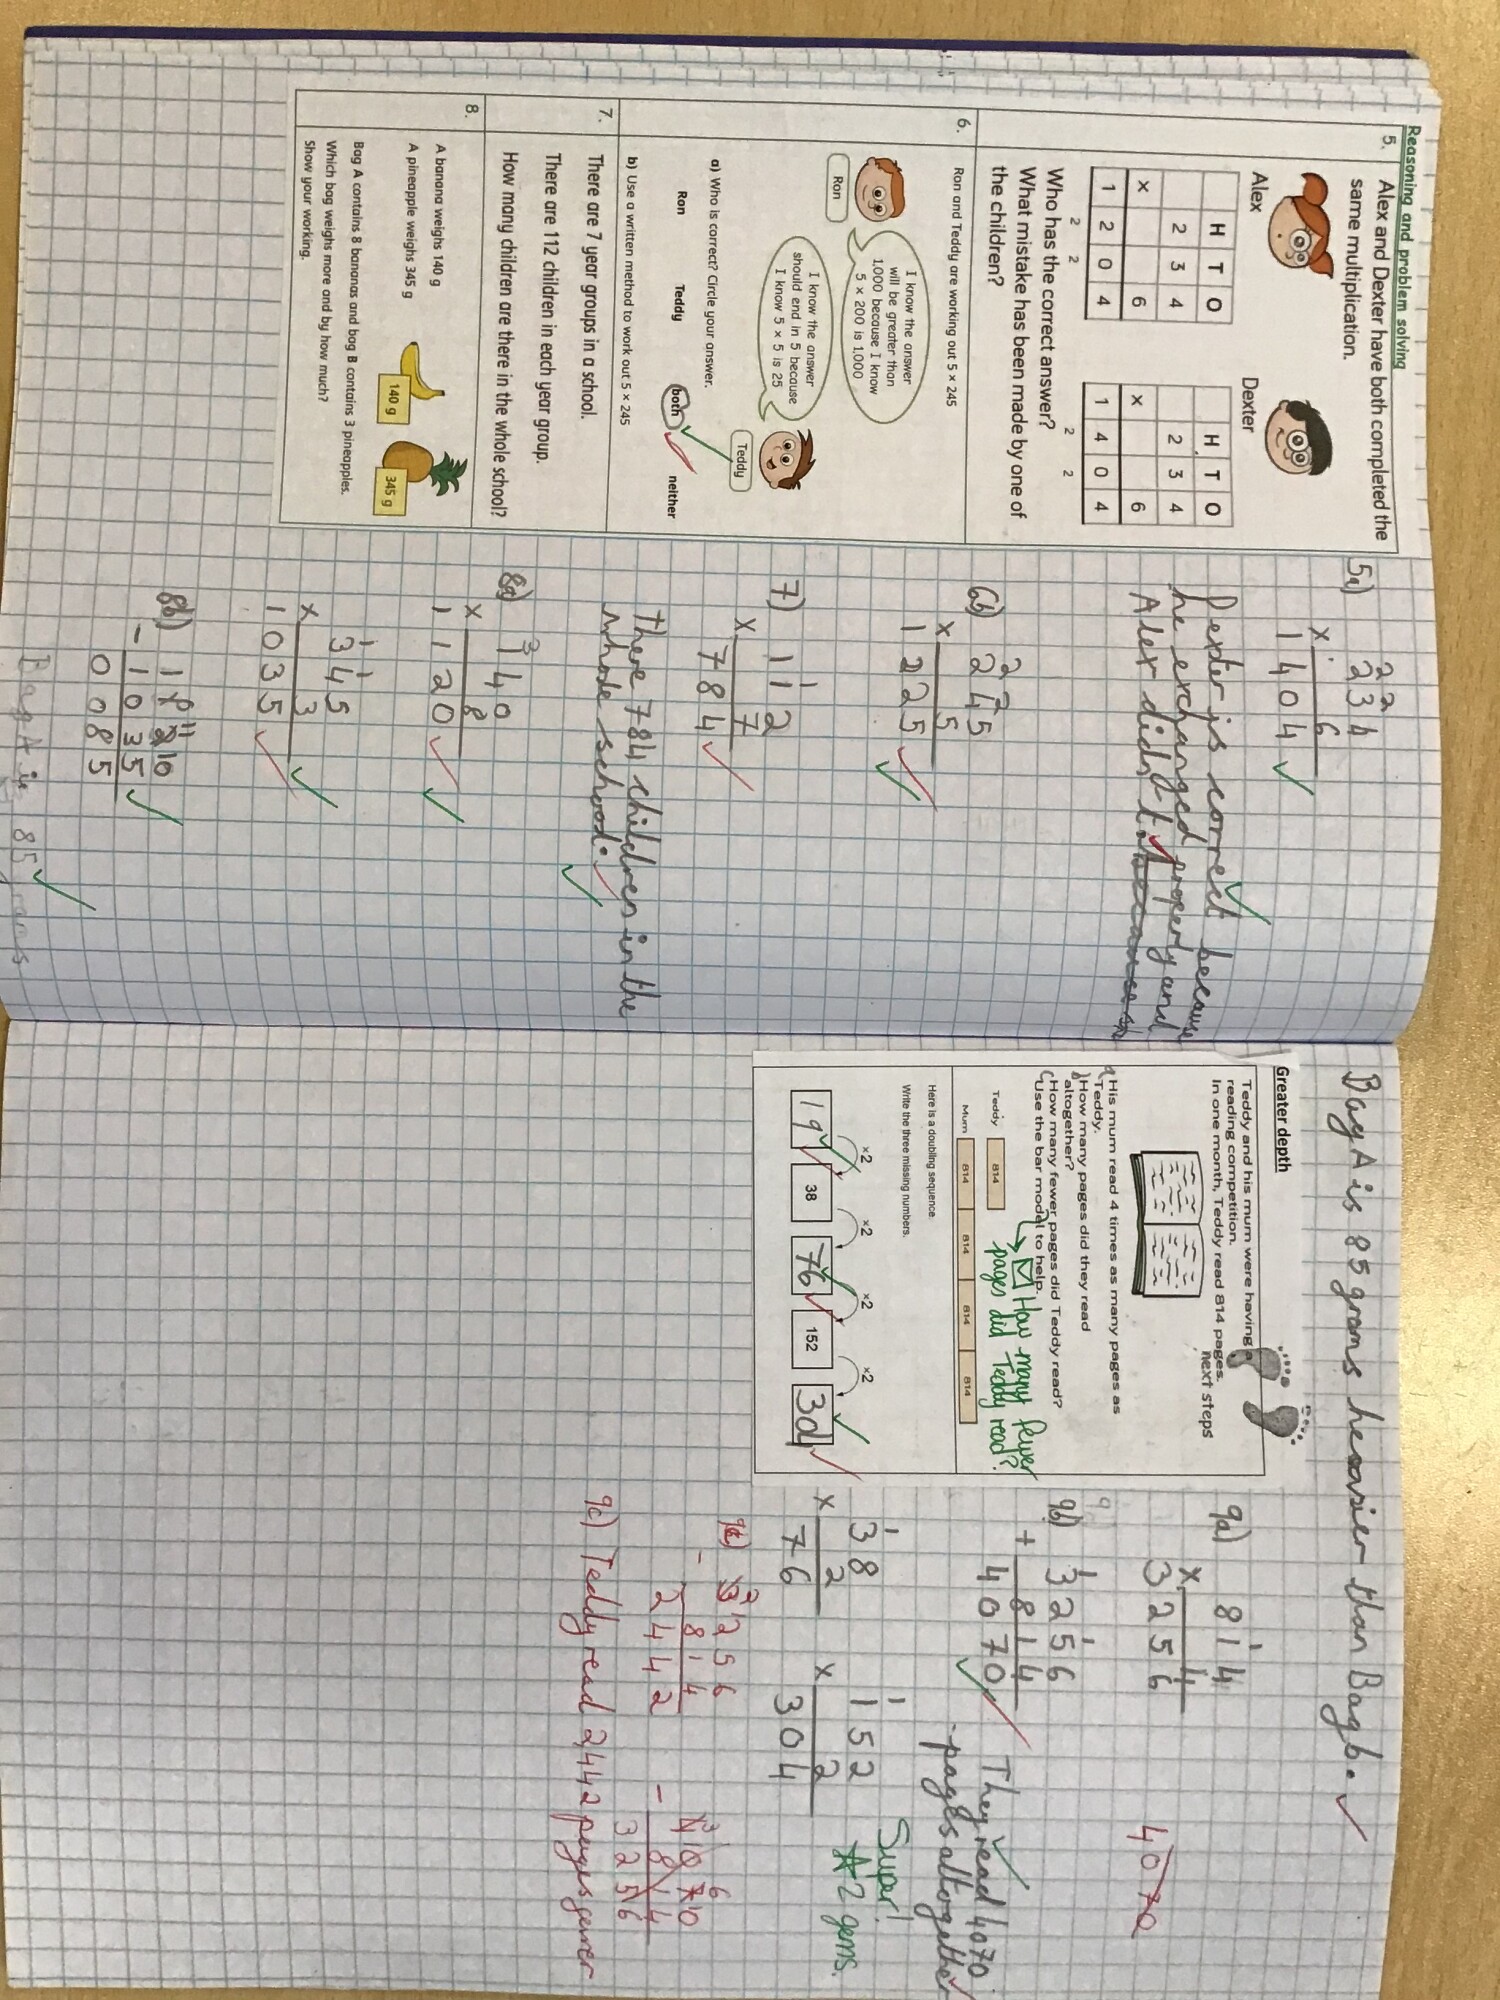 Reasoning and problem solving
5.
Alex and Dexter have both completed the
same multiplication.
Alex
Dexter
H T O
2 3 4
× 6
1 2 0 4
2 2
H T O
2 3 4
× 6
1 4 0 4
2 2
Who has the correct answer?
What mistake has been made by one of
the children?
6.
Ron and Teddy are working out 5 × 245
I know the answer
will be greater than
1,000 because I know
5 × 200 is 1,000
Ron
I know the answer
should end in 5 because
I know 5 × 5 is 25
Teddy
a) Who is correct? Circle your answer.
Ron Teddy both neither
b) Use a written method to work out 5 × 245
7.
There are 7 year groups in a school.
There are 112 children in each year group.
How many children are there in the whole school?
8.
A banana weighs 140 g
A pineapple weighs 345 g
140 g
345 g
Bag A contains 8 bananas and bag B contains 3 pineapples.
Which bag weighs more and by how much?
Show your working.
5a)
2 2
2 3 4
× 6
1 4 0 4 ✓
Dexter is correct because
he exchanged properly and
Alex didn't
6b)
2 2
2 4 5
× 5
1 2 2 5 ✓
7)
1
1 1 2
× 7
7 8 4 ✓
There 784 children in the
whole school. ✓
8a)
3
1 4 0
× 8
1 1 2 0 ✓
1 1
3 4 5
× 3
1 0 3 5 ✓
8b)
- 1 0 3 5
0 0 8 5 ✓
Bag A is 85 ✓
Bag A is 85 grams heavier than Bag b. ✓
Greater depth
Teddy and his mum were having a
reading competition.
In one month, Teddy read 814 pages.
next steps
a) His mum read 4 times as many pages as
Teddy.
b) How many pages did they read
altogether?
c) How many fewer pages did Teddy read?
Use the bar model to help.
How many fewer
pages did Teddy read?
Teddy 814
Mum 814 814 814 814
Here is a doubling sequence.
Write the three missing numbers.
×2 ×2 ×2 ×2
19 38 76 152 304
9a)
1
8 1 4
× 4
3 2 5 6
4070
9b)
1 1
3 2 5 6
+ 8 1 4
4 0 7 0 ✓
They read 4070
pages altogether
1
3 8
× 2
7 6
1
1 5 2
× 2
3 0 4
Super!
2 gems.
2
3 1 2 5 6
- 8 1 4
2 4 4 2
3 6
4 10 7 10
- 8 1 4
3 2 5 6
9c) Teddy read 2,442 pages fewer